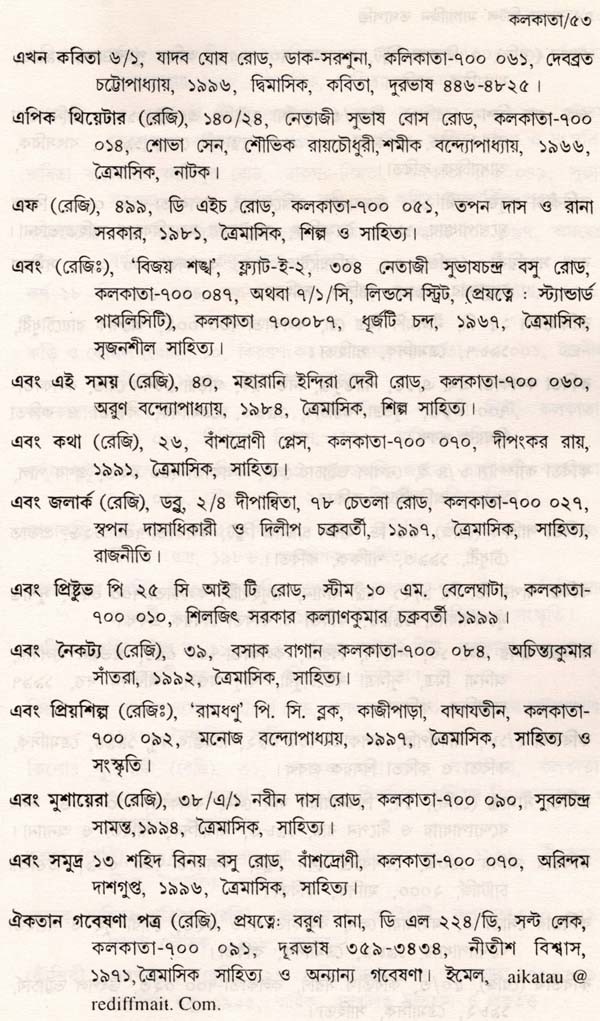 কলকাতা/৫৩
এখন কবিতা ৬/১, যাদব ঘোষ রোড, ডাক-সরশুনা, কলিকাতা-৭০০ ০৬১, দেবব্রত
চট্টোপাধ্যায়, ১৯৯৬, দ্বিমাসিক, কবিতা, দূরভাষ ৪৪৬-৪৮২৫।
এপিক থিয়েটার (রেজি), ১৪০/২৪, নেতাজী সুভাষ বোস রোড, কলকাতা-৭০০
০১৪, শোভা সেন, শৌভিক রায়চৌধুরী, শমীক বন্দ্যোপাধ্যায়, ১৯৬৬,
ত্রৈমাসিক, নাটক।
এফ (রেজি), ৪৯৯, ডি এইচ রোড, কলকাতা-৭০০ ০৫১, তপন দাস ও রানা
সরকার, ১৯৮১, ত্রৈমাসিক, শিল্প ও সাহিত্য।
এবং (রেজিঃ), ‘বিজয় শঙ্খ’, ফ্ল্যাট-ই-২, ৩০৪ নেতাজী সুভাষচন্দ্র বসু রোড,
কলকাতা-৭০০ ০৪৭, অথবা ৭/১/সি, লিন্ডসে স্ট্রিট, (প্রযত্নে : স্ট্যান্ডার্ড
পাবলিসিটি), কলকাতা ৭০০০৮৭, ধূর্জটি চন্দ, ১৯৬৭, ত্রৈমাসিক,
সৃজনশীল সাহিত্য।
এবং এই সময় (রেজি), ৪০, মহারানি ইন্দিরা দেবী রোড, কলকাতা-৭০০ ০৬০,
অরুণ বন্দ্যোপাধ্যায়, ১৯৮৪, ত্রৈমাসিক, শিল্প সাহিত্য।
এবং কথা (রেজি), ২৬, বাঁশদ্রোণী প্লেস, কলকাতা-৭০০ ০৭০, দীপংকর রায়,
১৯৯১, ত্রৈমাসিক, সাহিত্য।
এবং জলার্ক (রেজি), ডব্লু, ২/৪ দীপান্বিতা, ৭৮ চেতলা রোড, কলকাতা-৭০০ ০২৭,
স্বপন দাসাধিকারী ও দিলীপ চক্রবর্তী, ১৯৯৭, ত্রৈমাসিক, সাহিত্য,
রাজনীতি।
এবং প্রিষ্টুভ পি ২৫ সি আই টি রোড, স্টীম ১০ এম. বেলেঘাটা, কলকাতা-
৭০০ ০১০, শিলজিৎ সরকার কল্যাণকুমার চক্রবর্তী ১৯৯৯।
এবং নৈকট্য (রেজি), ৩৯, বসাক বাগান কলকাতা-৭০০ ০৮৪, অচিন্ত্যকুমার
সাঁতরা, ১৯৯২, ত্রৈমাসিক, সাহিত্য।
এবং প্রিয়শিল্প (রেজিঃ), ‘রামধণু’ পি. সি. ব্লক, কাজীপাড়া, বাঘাযতীন, কলকাতা-
৭০০ ০৯২, মনোজ বন্দ্যোপাধ্যায়, ১৯৯৭, ত্রৈমাসিক, সাহিত্য ও
সংস্কৃতি।
এবং মুশায়েরা (রেজি), ৩৮/এ/১ নবীন দাস রোড, কলকাতা-৭০০ ০৯০, সুবলচন্দ্র
সামন্ত, ১৯৯৪, ত্রৈমাসিক, সাহিত্য।
এবং সমুদ্র ১৩ শহিদ বিনয় বসু রোড, বাঁশদ্রোণী, কলকাতা-৭০০ ০৭০, অরিন্দম
দাশগুপ্ত, ১৯৯৬, ত্রৈমাসিক, সাহিত্য।
ঐকতান গবেষণা পত্র (রেজি), প্রযত্নে: বরুণ রানা, ডি এল ২২৪/ডি, সল্ট লেক,
কলকাতা-৭০০ ০৯১, দূরভাষ ৩৫৯-৩৪৩৪, নীতীশ বিশ্বাস,
১৯৭১, ত্রৈমাসিক সাহিত্য ও অন্যান্য গবেষণা। ইমেল, aikatau @
rediffmait. Com.